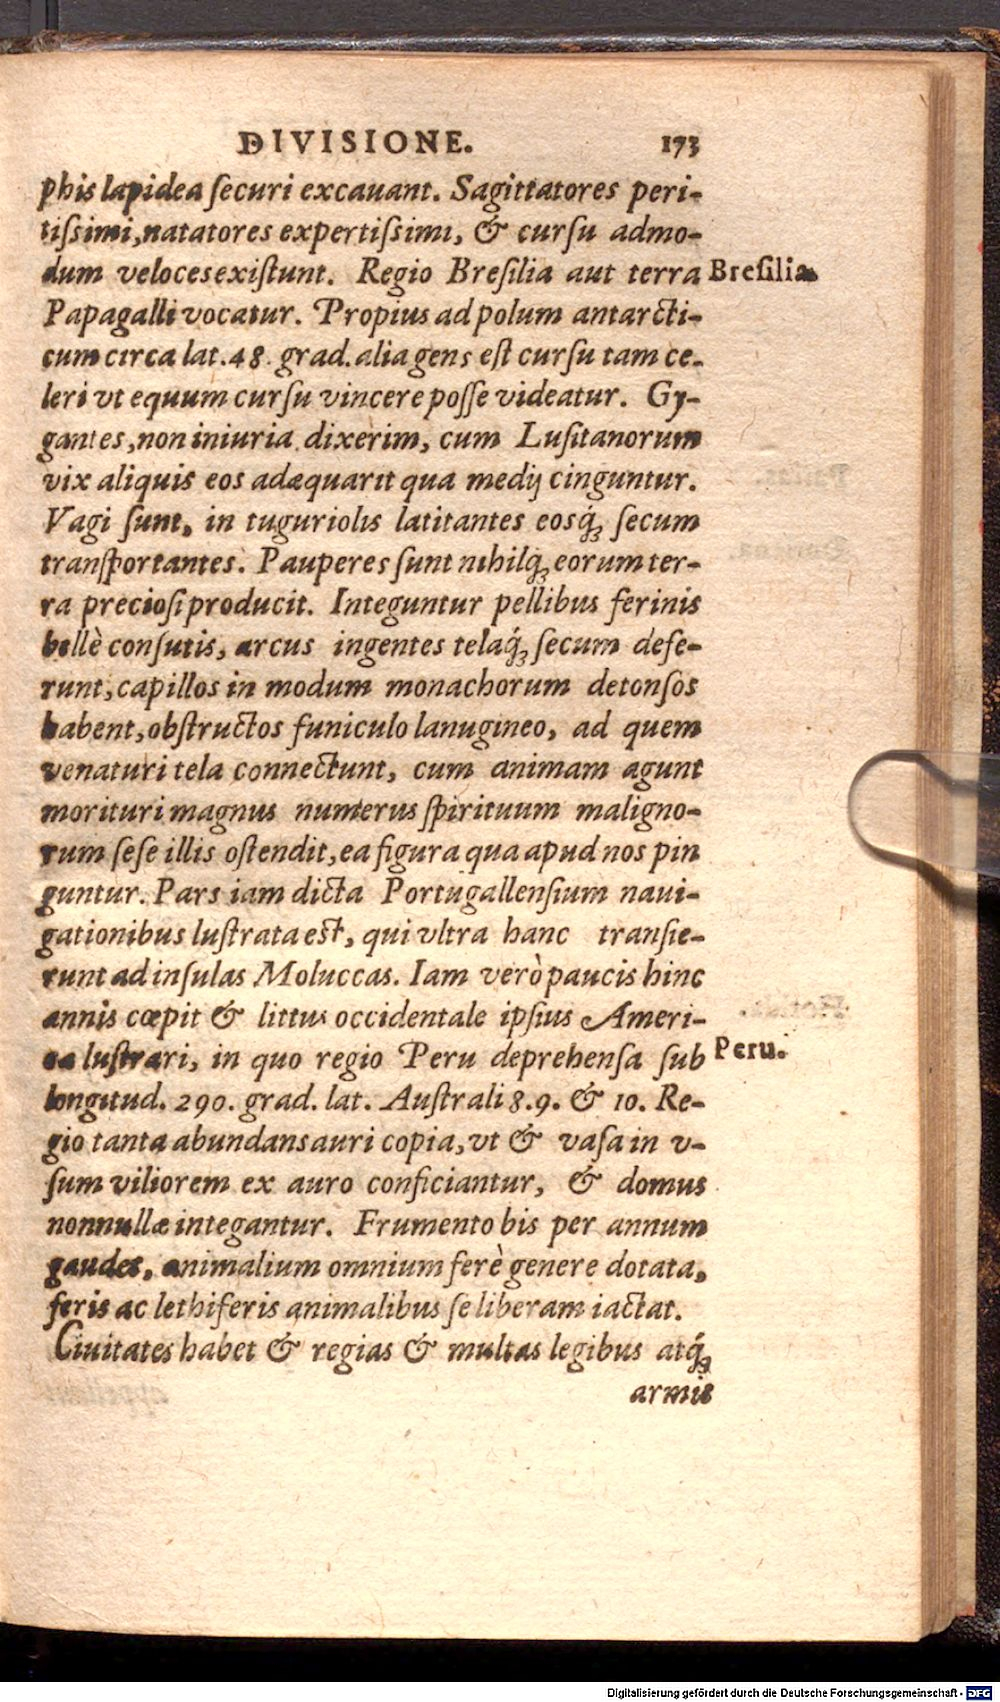 DIVISIONE. 173
phis lapidea ſecuri excauant. Sagittatores peri-
tiſsimi, natatores expertiſsimi, & curſu admo-
dum veloces exiſtunt. Regio Breſilia aut terra
Breſilia
Papagalli vocatur. Propius ad polum antarcti-
cum circa lat. 48. grad. alia gens eſt curſu tam ce-
leri vt equum curſu vincere poſſe videatur. Gy-
gantes, non iniuria dixerim, cum Luſitanorum
vix aliquis eos adæquarit qua medij cinguntur.
Vagi ſunt, in tuguriolis latitantes eosq́; ſecum
tranſportantes. Pauperes ſunt nihilq́; eorum ter-
ra precioſi producit. Integuntur pellibus ferinis
bellè conſutis, arcus ingentes telaq́; ſecum defe-
runt, capillos in modum monachorum detonſos
habent, obſtructos funiculo lanugineo, ad quem
venaturi tela connectunt, cum animam agunt
morituri magnus numerus ſpirituum maligno-
rum ſeſe illis oſtendit, ea figura qua apud nos pin
guntur. Pars iam dicta Portugallenſium naui-
gationibus luſtrata eſt, qui vltra hanc tranſie-
runt ad inſulas Moluccas. Iam verò paucis hinc
annis cœpit & littus occidentale ipſius Ameri-
ca luſtrari, in quo regio Peru deprehenſa ſub
Peru.
longitud. 290. grad. lat. Auſtrali 8. 9. & 10. Re-
gio tanta abundans auri copia, vt & vaſa in v-
ſum viliorem ex auro conficiantur, & domus
nonnullæ integantur. Frumento bis per annum
gaudet, animalium omnium ferè genere dotata,
feris ac lethiferis animalibus ſe liberam iactat.
Ciuitates habet & regias & multas legibus atq́;
armis
Digitalisierung gefördert durch die Deutsche Forschungsgemeinschaft - DFG